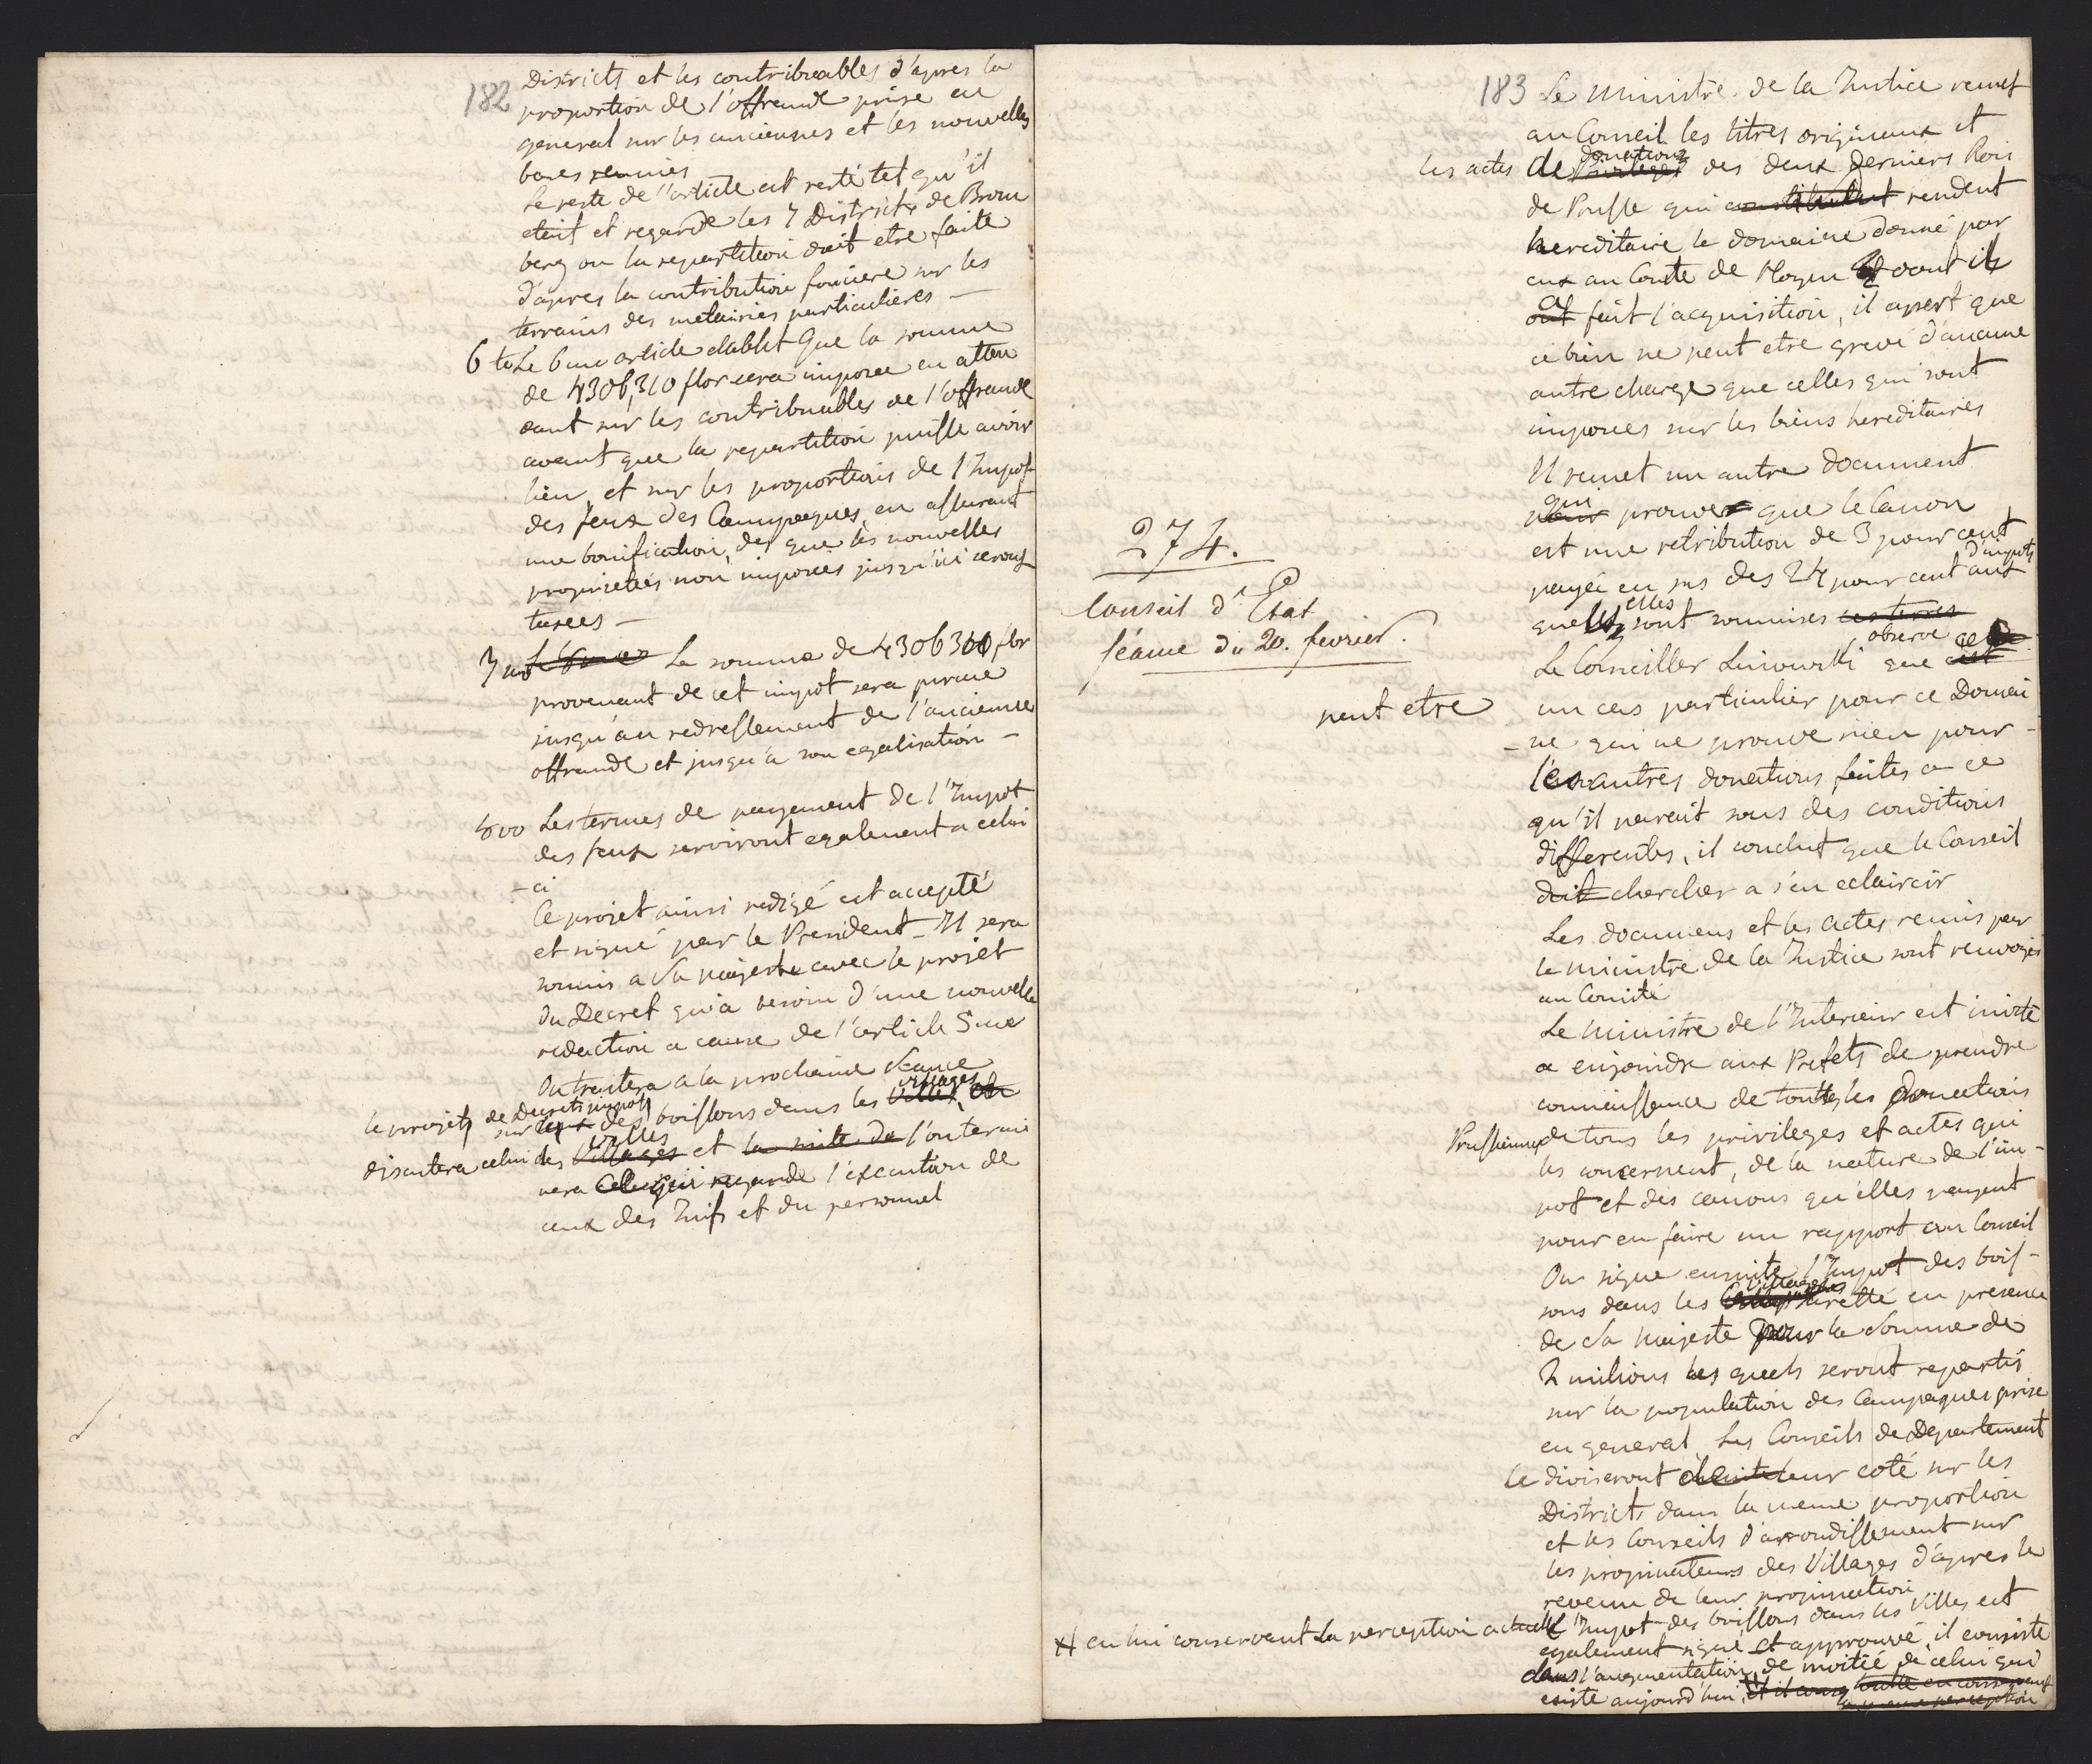 182
Districts et les contribuables d'apres la
proportion de l'offrande prise en
general sur les anciennes et les nouvelles
bases reunies
Le reste de l'article est resté tel qu'il
etoit et regarde les 7 Districts de Brom
berg ou la repartition doit etre faite
d'apres la contribution fonciere sur les
terrains des metairies particulieres —
6 to Le 6me article etablit Que la somme
de 4306,310 flor sera imposee en atten
dant sur les contribuables de l'offrande
avant que la repartition puisse avoir
lieu, et sur les proportions de l'Impot
des feux des Campagnes, en assurant
une bonification, des que les nouvelles
proprietées non imposées jusqu'ici seront
taxees —
7mo La somme de 4306310 flor
provenant de cet impot sera percue
jusqu'au redressement de l'ancienne
offrande et jusqu'a son egalisation —
8vo Les termes de payement de l'Impot
des feux serviront egalement a celui
-ci
Ce projet ainsi redigé est accepté
et signé par le President — Il sera
soumis a Sa majeste avec le projet
du Decret qui a besoin d'une nouvelle
redaction a cause de l'article 5me
On traitera a la prochaine Seance
villages
le projets de Decrets impots sur des boissons dans les Villes, on
villes
discutera celui des Villages et la suite de l'on termi
nera Celui qui regarde l'execution de
ceux des Juifs et du personnel
183
Le Ministre de la Justice remet
au Conseil les titres originaux et
donations
les actes de Privileges des deux derniers Rois
de Prusse qui constituent rendent
hereditaire le domaine donné par
eux au Comte de et dont il
a
ont fait l'acquisition, il apert que
ce bien ne peut etre grevé d'aucune
autre charge que celles qui sont
imposees sur les biens hereditaires
Il remet un autre document
qui
pour prouver que le Canon
est une retribution de 3 pour cent
d'impots
payée en sus des 24 pour cent aux
elles
quels sont soumises ces terres
observe
274.
Conseil d'Etat
séance du 20. fevrier.
Le Conseiller Linowski que c'est
peut etre
un cas particulier pour ce Domai
- ne qui ne prouve rien pour -
les autres donations faites a ce
qu'il parait sous des conditions
differentes, il conclut que le Conseil
doit chercher a s'en eclaircir
Les documens et les actes remis par
le ministre de la Justice sont renvoyés
au Comité
Le Ministre de l'Interieur est invité
a enjoindre aux Prefets de prendre
connaissance de toutes les Donations
Prussiennes de tous les privileges et actes qui
les concernent, de la nature de l'im-
pot et des canons qu'elles payent
pour en faire un rapport au Conseil
On signe ensuite l'Impot des bois-
villages
sons dans les arretté en presence
de Sa Majesté pour la Somme de
2 milions les quels seront repartis
sur la population des Campagnes prise
en general, Les Conseils de Departement
le diviseront de leur coté sur les
Districts dans la meme proportion
et les Conseils d'arrondissement sur
les propinateurs des Villages d'apres le
revenu de leur propination
L'Impot des boissons dans les Villes est
egalement signé et approuvé, il consiste
dans l'augmentation de moitié de celui qui
existe aujourd'hui
# en lui conservant la perception actuelle